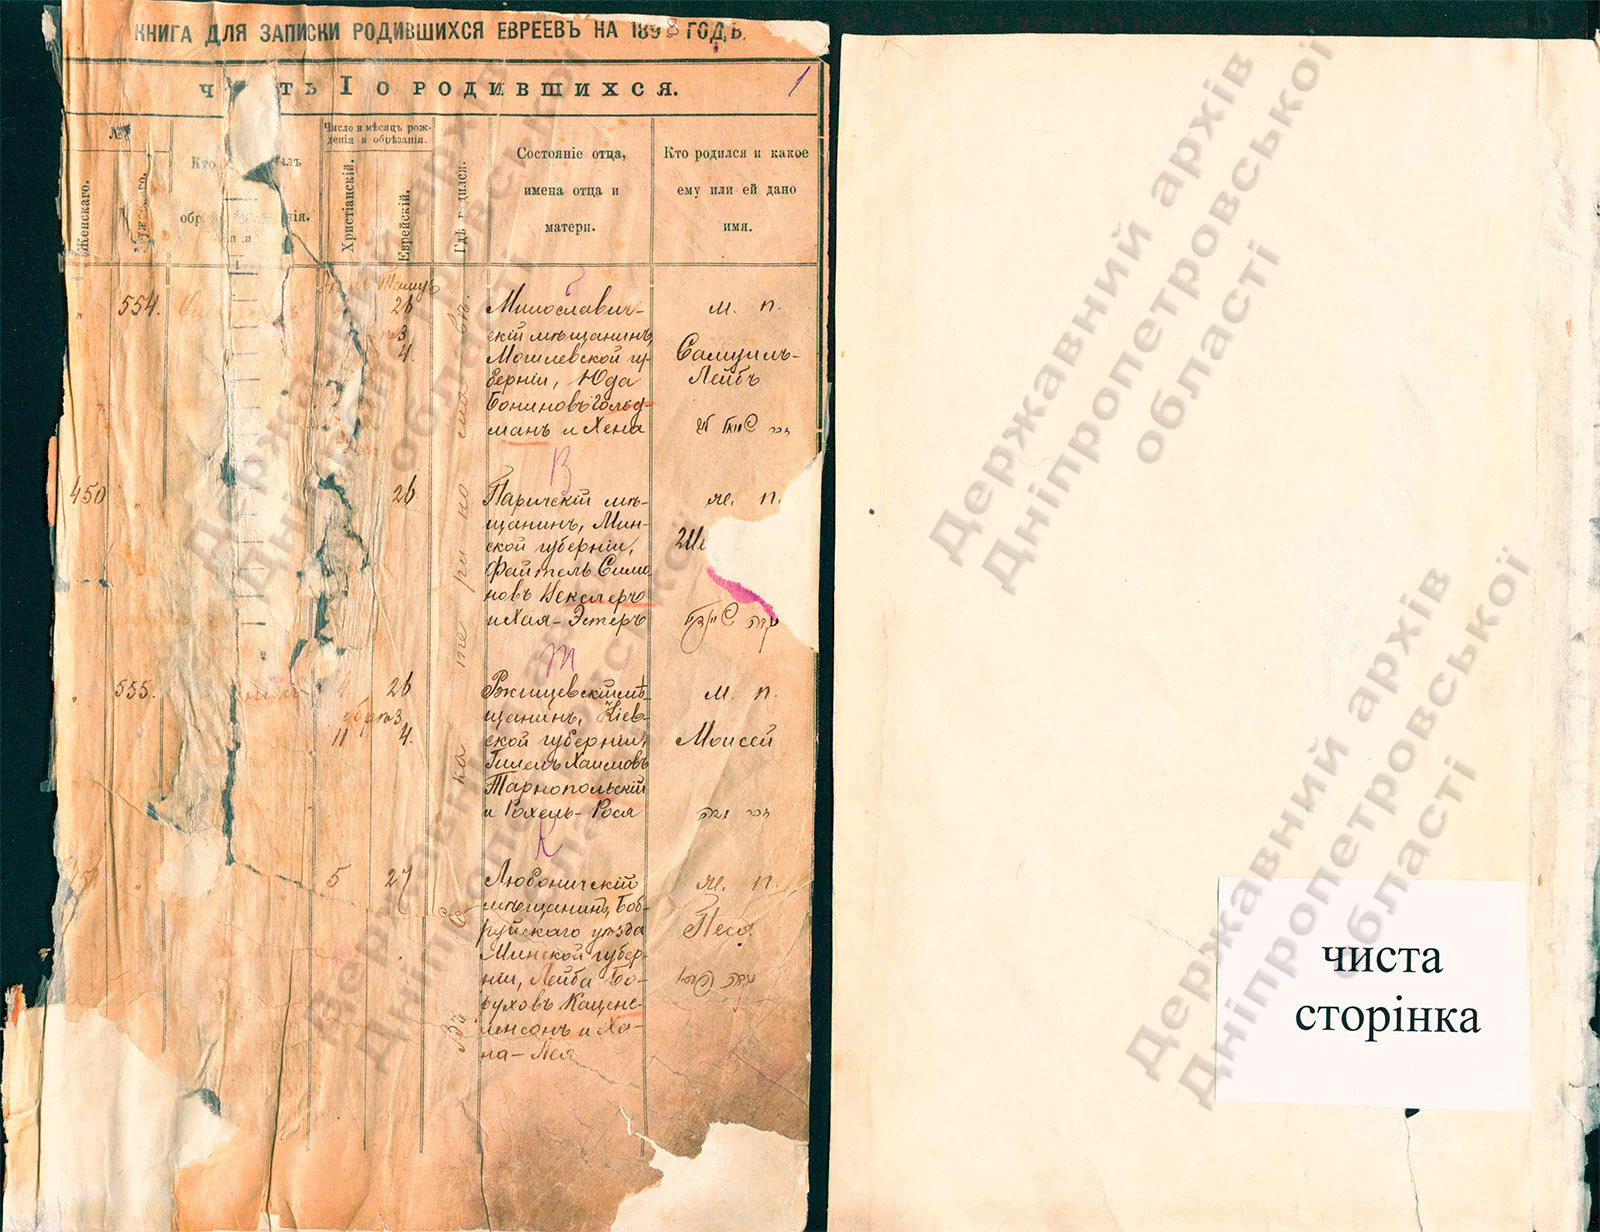 КНИГА ДЛЯ ЗАПИСКИ РОДИВШИХСЯ ЕВРЕЕВЪ НА 1898 ГОДЪ.
1
I О РОДИВШИХСЯ.
№
Женскаго.
Кто
Число и мѣсяцъ рож-
денія и обрѣзанія.
Христіанскій.
Еврейскій.
Состояніе отца,
имена отца и
матери.
Кто родился и какое
ему или ей дано
имя.
554.
26
4.
Милославич-
скій мѣщанинъ,
Могилевской гу-
берніи, Юда
Бониновъ Гольд-
манъ и Хена
м. п.
Самуилъ-
Лейбъ
450
26
В
Паричскій мѣ-
щанинъ, Мин-
ской губерніи,
Файтель Симо
новъ Векслеръ
и Хая-Эстеръ
ж. п.
555.
4
26
обрѣз
11
4.
Т
Ржищевскій мѣ-
щанинъ, Кіев-
ской губерніи,
Гилель Хаимовъ
Тарнопольскій
и Рохель-Рося
м. п.
Моисей
5
27
К
Любоничскій
мѣщанинъ, Боб-
руйскаго уѣзда
Минской губер-
ніи, Лейба Бо-
руховъ Кацене-
ленсонъ и Ха-
на-Лея
ж. п.
Песя
Державний архів
Дніпропетровської
області
Державний архів
Дніпропетровської
області
Державний архів
Дніпропетровської
області
Державний архів
Дніпропетровської
області
чиста
сторінка